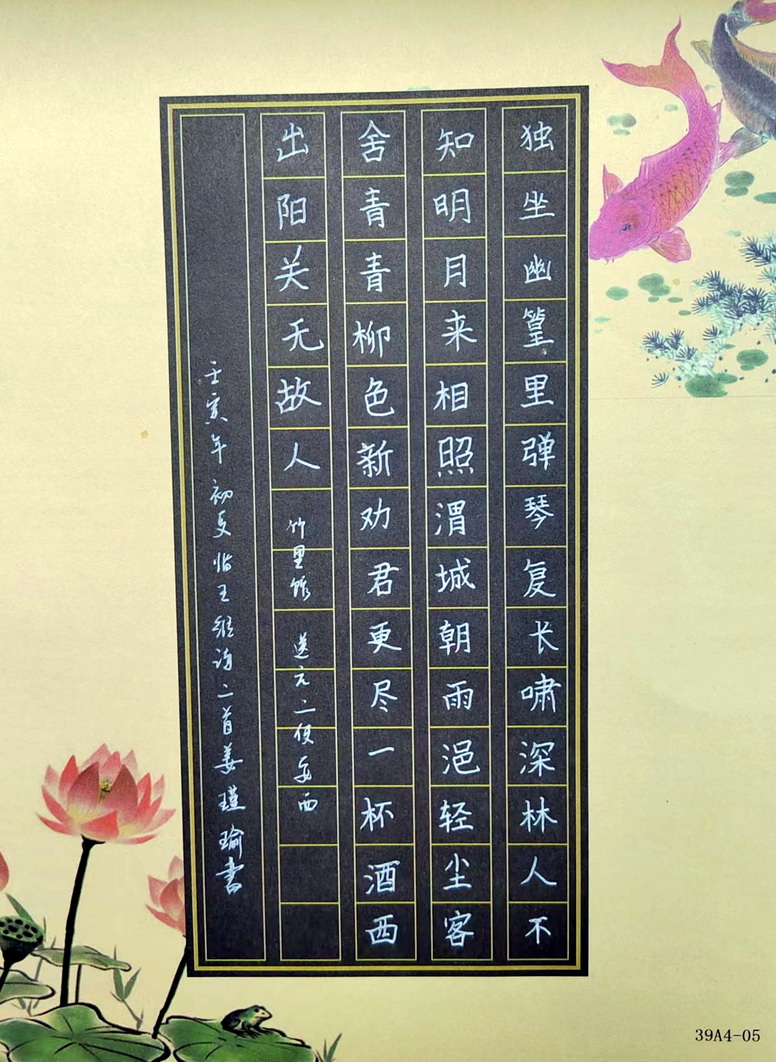 独坐幽篁里弹琴复长啸深林人不
知明月来相照渭城朝雨浥轻尘客
舍青青柳色新劝君更尽一杯酒西
出阳关无故人 竹里馆 送元二使安西
壬寅年初夏临王维诗二首姜瑾瑜书
39A4-05